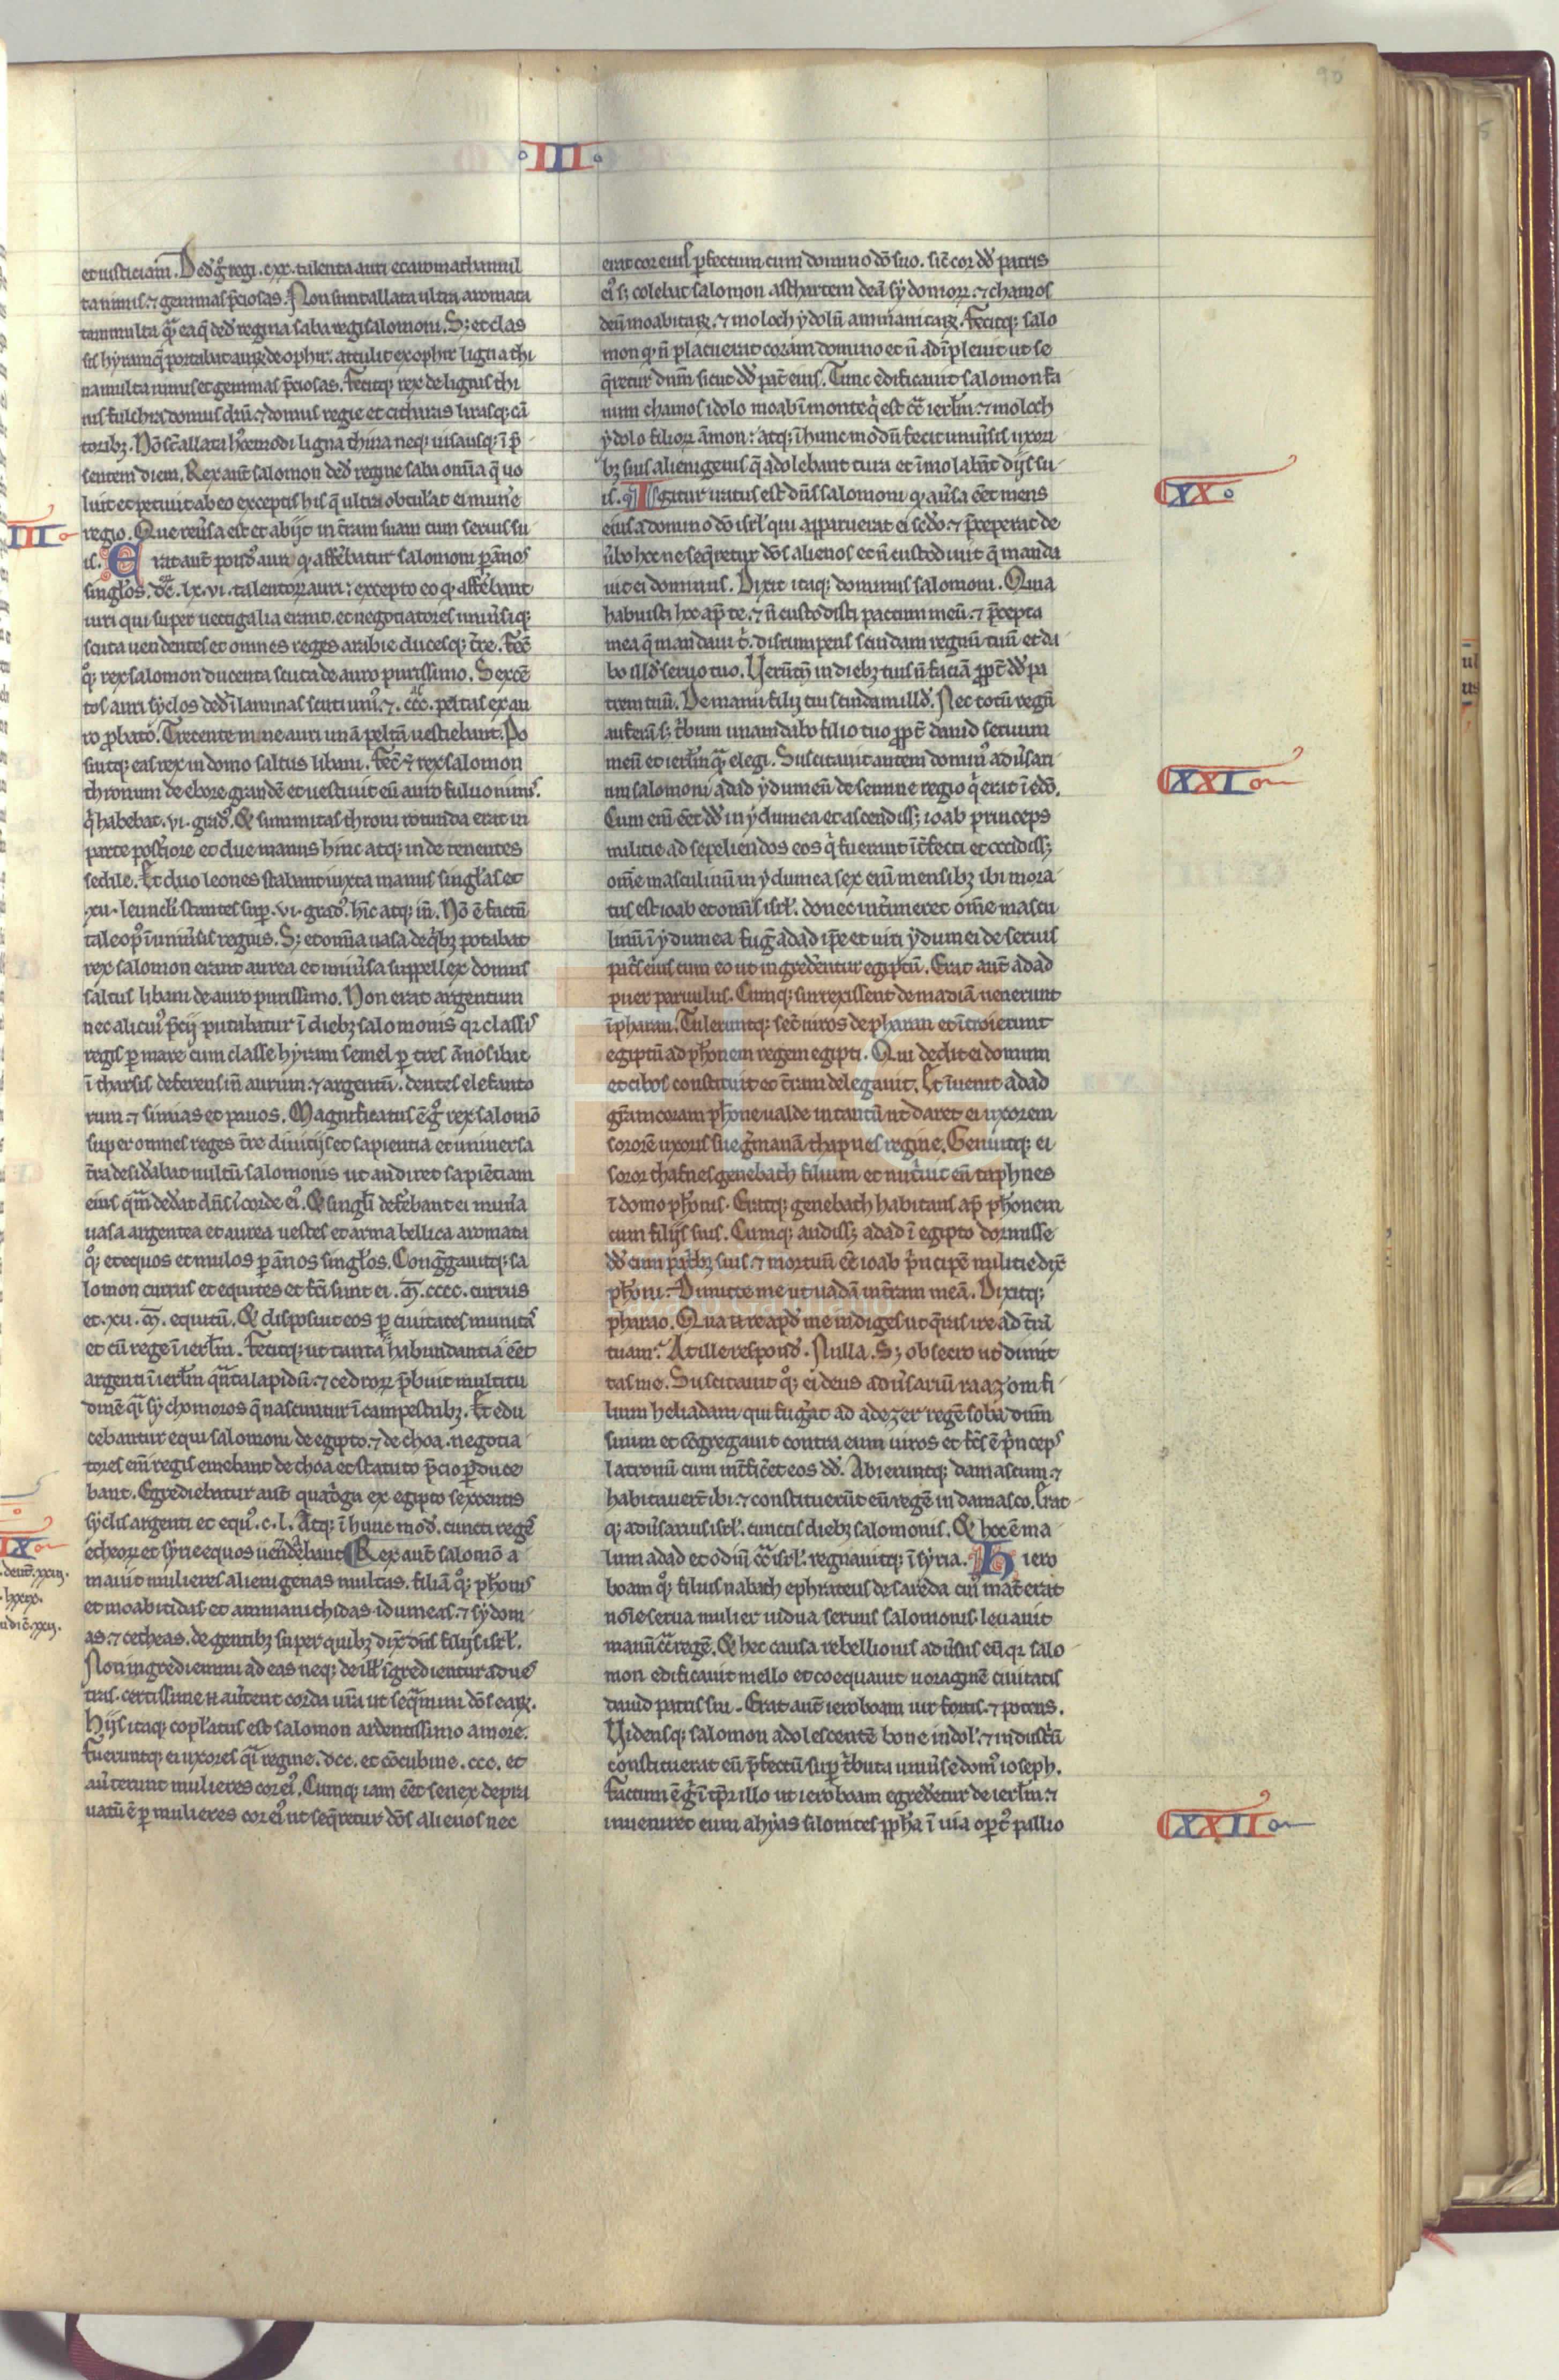 90
III
et iusticiam. Ded̾ g̊ regi .cxx. talenta auri et aromata mul
ta nimis ⁊ gemmas p̄ciosas. Non sunt allata ultra aromata
tam multa q̄ ea q̄ ded̾ regina saba regi salomoni. Sꝫ et clas
sis hyram q̄ portabat auꝝ de ophir. attulit ex ophir ligna thi
na multa nimis et gemmas p̄ciosas. Fecitqꝫ rex de lignis thi
nis fulchra domus dn̄i ⁊ domus regie et citharas lirasqꝫ cā
toribꝫ. Nō sт̄ allata hꝰcemodi ligna thina neqꝫ uisa usqꝫ ī p̄
sentem diem. Rex aut̄ salomon ded̾ regine saba om̄ia q̄ uo
luit et petiuit ab eo exceptis his q̄ ultra obtul̾at ei mun̾e
regio. Que reu̾sa est et abijt in t̄ram suam cum seruis su
is. Erat aut̄ pond̾ auri qꝫ affe̾batur salomoni ꝑ ānos
singl̾os. dc̄. lx. vi. talentoꝝ auri: excepto eo qꝫ affe̾bant
uiri qui super uectigalia erant. et negotiatores uniu̾siqꝫ
scuta uendentes et omnes reges arabie ducesqꝫ t̄re. Fec̄
qꝫ rex salomon ducenta scuta de auro purissimo. Sexcē
tos auri syclos ded̾ ī laminas scuti uniꝰ. ⁊ .ccc. peltas ex au
ro ꝓbato. Trecente mine auri unā peltā uestiebant. Po
suitqꝫ eas rex in domo saltus libani. Fec̄ ⁊ rex salomon
thronum de ebore grandē et uestiuit eū auro fuluo nimis.
q̄ habebat .vi. gradꝰ. Et summitas throni rotunda erat in
parte post̾iore et due manus hinc atqꝫ inde tenentes
sedile. Et duo leones stabant iuxta manus singl̾as et
.xii. leunc̾li stantes suꝑ .vi. gradꝰ. hīc atqꝫ īn̄. Nō ē factū
tale opꝰ ī uniu̾sis regnis. Sꝫ et om̄ia uasa de q̄bꝫ potabat
rex salomon erant aurea et uniu̾sa suppellex domus
saltus libani de auro purissimo. Non erat argentum
nec alicuiꝰ p̄cij putabatur ī diebꝫ salomonis qꝛ classis
regis ꝑ mare cum classe hyram semel ꝑ tres ānos ibat
ī tharsis deferens īn̄ aurum ⁊ argentū. dentes elefanto
rum ⁊ simias et pauos. Magnificatus ē g̊ rex salomō
super omnes reges t̄re diuitijs et sapientia et uniuersa
t̄ra desid̾abat uultū salomonis ut audiret sapiētiam
eius q̄m ded̾at dn̄s ī corde eiꝰ. Et singl̾i defe̾bant ei mun̾a
uasa argentea et aurea uestes et arma bellica aromata
qꝫ et equos et mulos ꝑ ānos singl̾os. Congg̾auitqꝫ sa
lomon currus et equites et fc̄i sunt ei .m̄. cccc. currus
et .xii. m̄. equitū. Et disposuit eos ꝑ ciuitates munitas
et cū rege ī ierl̄m. Fecitqꝫ ut tanta habundantia ēet
argenti ī ierl̄m q̄nta lapidū ⁊ cedroꝝ p̄buit multitu
dinē q̄i sychomoros q̄ nascuntur ī campestribꝫ. Et edu
cebantur equi salomoni de egipto ⁊ de choa. negotia
tores em̄ regis emebant de choa et statuto p̄cio ꝑduce
bant. Egrediebatur aut̄ quad̾ga ex egipto sexcentis
syclis argenti et equꝰ .c. l. Atqꝫ ī hunc mod̾. cuncti reges
etheoꝝ et syrie equos uend̾ebant. Rex aut̄ salomō a
mauit mulieres alienigenas multas. filiā qꝫ pħonis
et moabitidas et ammanithidas. idumeas ⁊ sydoni
as. ⁊ cetheas. de gentibꝫ super quibꝫ dix̄ dn̄s filijs isrl̾.
Non ingrediemini ad eas neqꝫ de ill̾ īgredientur ad ues
tras. certissime .n. aut̾ent corda ur̄a ut seq̄mini dōs eaꝝ.
Hijs itaqꝫ copl̾atus est salomon ardentissimo amore.
Fueruntqꝫ ei uxores q̄i regine .dcc. et cōcubine .ccc. et
au̾terunt mulieres cor eiꝰ. Cumqꝫ iam ēet senex depra
uatū ē ꝑ mulieres cor eiꝰ ut seq̄retur dōs alienos nec
III
IX
deut̄. xxiii.
lxxix.
iudic̄. xxii.
erat cor eius ꝑfectum cum domino dō suo. sic̄ cor dd̾ patris
eiꝰ sꝫ colebat salomon astharten deā sydonioꝝ. ⁊ chamos
deū moabitaꝝ. ⁊ moloch ydolū ammanitaꝝ. Fecitqꝫ salo
mon qꝫ n̄ placuerat coram domino et n̄ adīpleuit ut se
q̄retur dn̄m sicut dd̾ pat̄ eius. Tunc edificauit salomon fa
num chamos idolo moab ī monte q̄ est cc̄a ierl̄m. ⁊ moloch
ydolo filioꝝ āmon: atqꝫ ī hunc modū fecit uniu̾sis uxori
bꝫ suis alienigenis q̄ adolebant tura et īmolabāt dijs su
is. Igitur iratus est dn̄s salomoni qꝫ au̾sa ēet mens
eius a domino dō isrl̾ qui apparuerat ei sed̾o. ⁊ p̄ceperat de
u̾bo hoc ne seq̄retur dōs alienos et n̄ custodiuit q̄ manda
uit ei dominus. Dixit itaqꝫ dominus salomoni. Quia
habuisti hoc ap̄ te. ⁊ n̄ custodisti pactum meū. ⁊ p̄cepta
mea q̄ mandaui t̾. disrumpens scindam regnū tuū et da
bo illd̾ seruo tuo. Uerūt̄n̄ in diebꝫ tuis n̄ faciā ꝓpt̄ dd̾ pa
trem tuū. De manu filij tui scindam illd̾. Nec totū regn̄
auferā sꝫ t̾bum unam dabo filio tuo ꝓpt̄ dauid seruum
meū et ierl̄m q̄ elegi. Suscitauit autem dominꝰ adu̾sari
um salomoni adad ydumeū de semine regio q̄ erat ī edō.
Cum em̄ ēet dd̾ in ydumea et ascendissꝫ ioab princeps
militie ad sepeliendos eos q̄ fuerant īt̾fecti et occidissꝫ
om̄e masculinū in ydumea sex em̄ mensibꝫ ibi mora
tus est ioab et omīs isrl̾. donec int̾imeret om̄e mascu
linū ī ydumea fug̾ adad ip̄e et uiri ydumei de seruis
pat̾s eius cum eo ut ingrederentur egiptū. Erat aut̄ adad
puer paruulus. Cumqꝫ surrexissent de madiā uenerunt
ī pharan. Tuleruntqꝫ sec̄ uiros de pharan et ītroierunt
egiptū ad pħonem regem egipti. Qui dedit ei domum
et cibos constituit et t̄ram delegauit. Et īuenit adad
gr̄am coram pħone ualde in tantū ut daret ei uxorem
sororē uxoris sue g̾manā thapnes regine. Genuitqꝫ ei
soror thafnes genebath filium et nut̾uit eū taphnes
ī domo pħonis. Eratqꝫ genebath habitans ap̄ pħonem
cum filijs suis. Cumqꝫ audissꝫ adad ī egipto dormisse
dd̾ cum pat̾bꝫ suis ⁊ mortuū ēe ioab p̾ncipē militie dix̄
pħoni. Dimitte me ut uadā in t̄ram meā. Dixitqꝫ
pharao. Qua .n. re apd̾ me indiges ut q̄ras ire ad t̄rā
tuam? At ille respond̾. Nulla. Sꝫ obsecro ut dimit
tas me. Suscitauit qꝫ ei deus adu̾sariū raazom fi
lium heliadam qui fug̾at ad adezer regē soba dnm̄
suum et cōgregauit contra eum uiros et fc̄s ē p̾nceps
latronū cum int̾fic̾et eos dd̾. Abieruntqꝫ damascum ⁊
habitauer̄t ibi. ⁊ constituerūt eū regē in damasco. Erat
qꝫ adu̾sarius isrl̾. cunctis diebꝫ salomonis. Et hoc ē ma
lum adad et odiū cc̄a isrl̾. regnauitqꝫ ī syria. Hiero
boam qꝫ filius nabath ephrateus de sareda cuiꝰ mat̄ erat
noīe serua mulier uidua seruus salomonis. leuauit
manū cc̄a regē. Et hec causa rebellionis adu̾sus eū qꝛ salo
mon edificauit mello et coequauit uoraginē ciuitatis
dauid patris sui. Erat aut̄ ieroboam uir fortis. ⁊ potens.
Uidensqꝫ salomon adolescentē bone indol̾. ⁊ industriū
constituerat eū p̄fectū suꝑ t̾buta uniu̾se domꝰ ioseph.
Factum ē g̊ ī tp̄r illo ut ieroboam egred̾etur de ierl̄m ⁊
inueniret eum ahyas silonites ꝓpħa ī uia oꝑt̄ pallio
XX
XXI
XXII